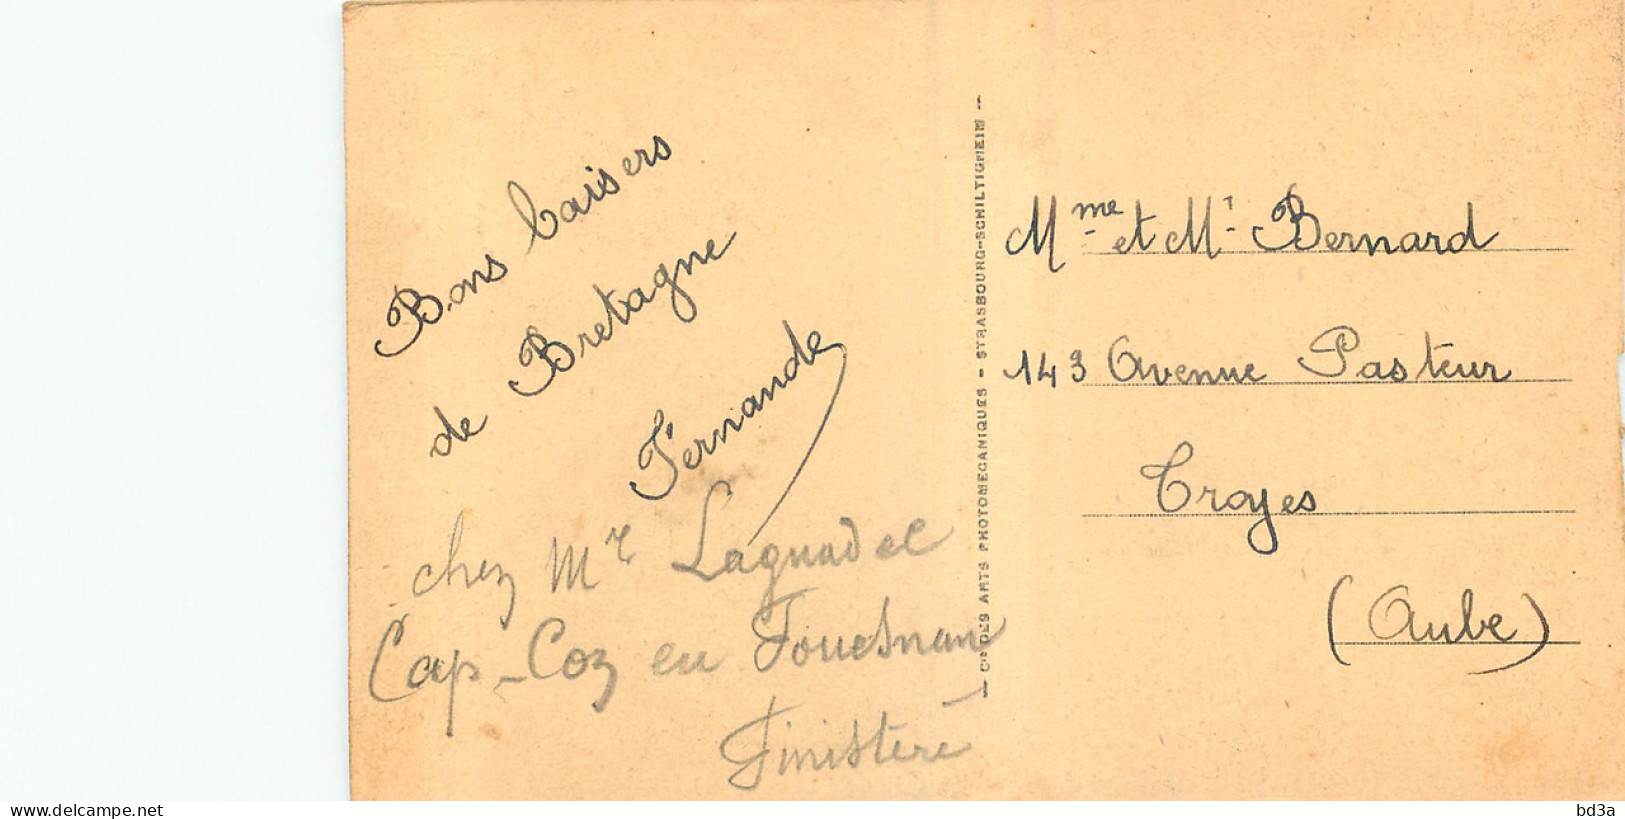 Bons baisers
de Bretagne
Fernande
chez Mr Laguadec
Cap-Coz en Fouesnant
Finistère
— Cie DES ARTS PHOTOMECANIQUES - STRASBOURG-SCHILTIGHEIM —
Mme et Mr Bernard
143 Avenue Pasteur
Troyes
(Aube)
www.delcampe.net
bd3a